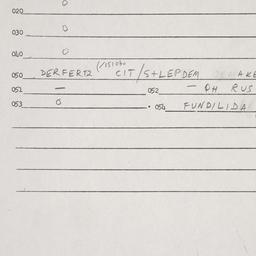 020 0
030 0
040 0
050 DERFERTZ CIT/S+LEPDEM AKE
051 — 052 — OH RUS
053 0 • 054 FUNDILIDA